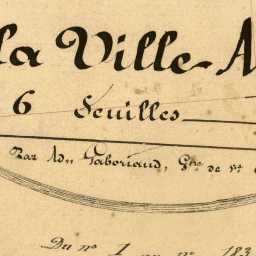 la Ville-A
6 Feuilles
Par Adn. Gaboriaud, Gre. de 1re
Du no 1 au no 183